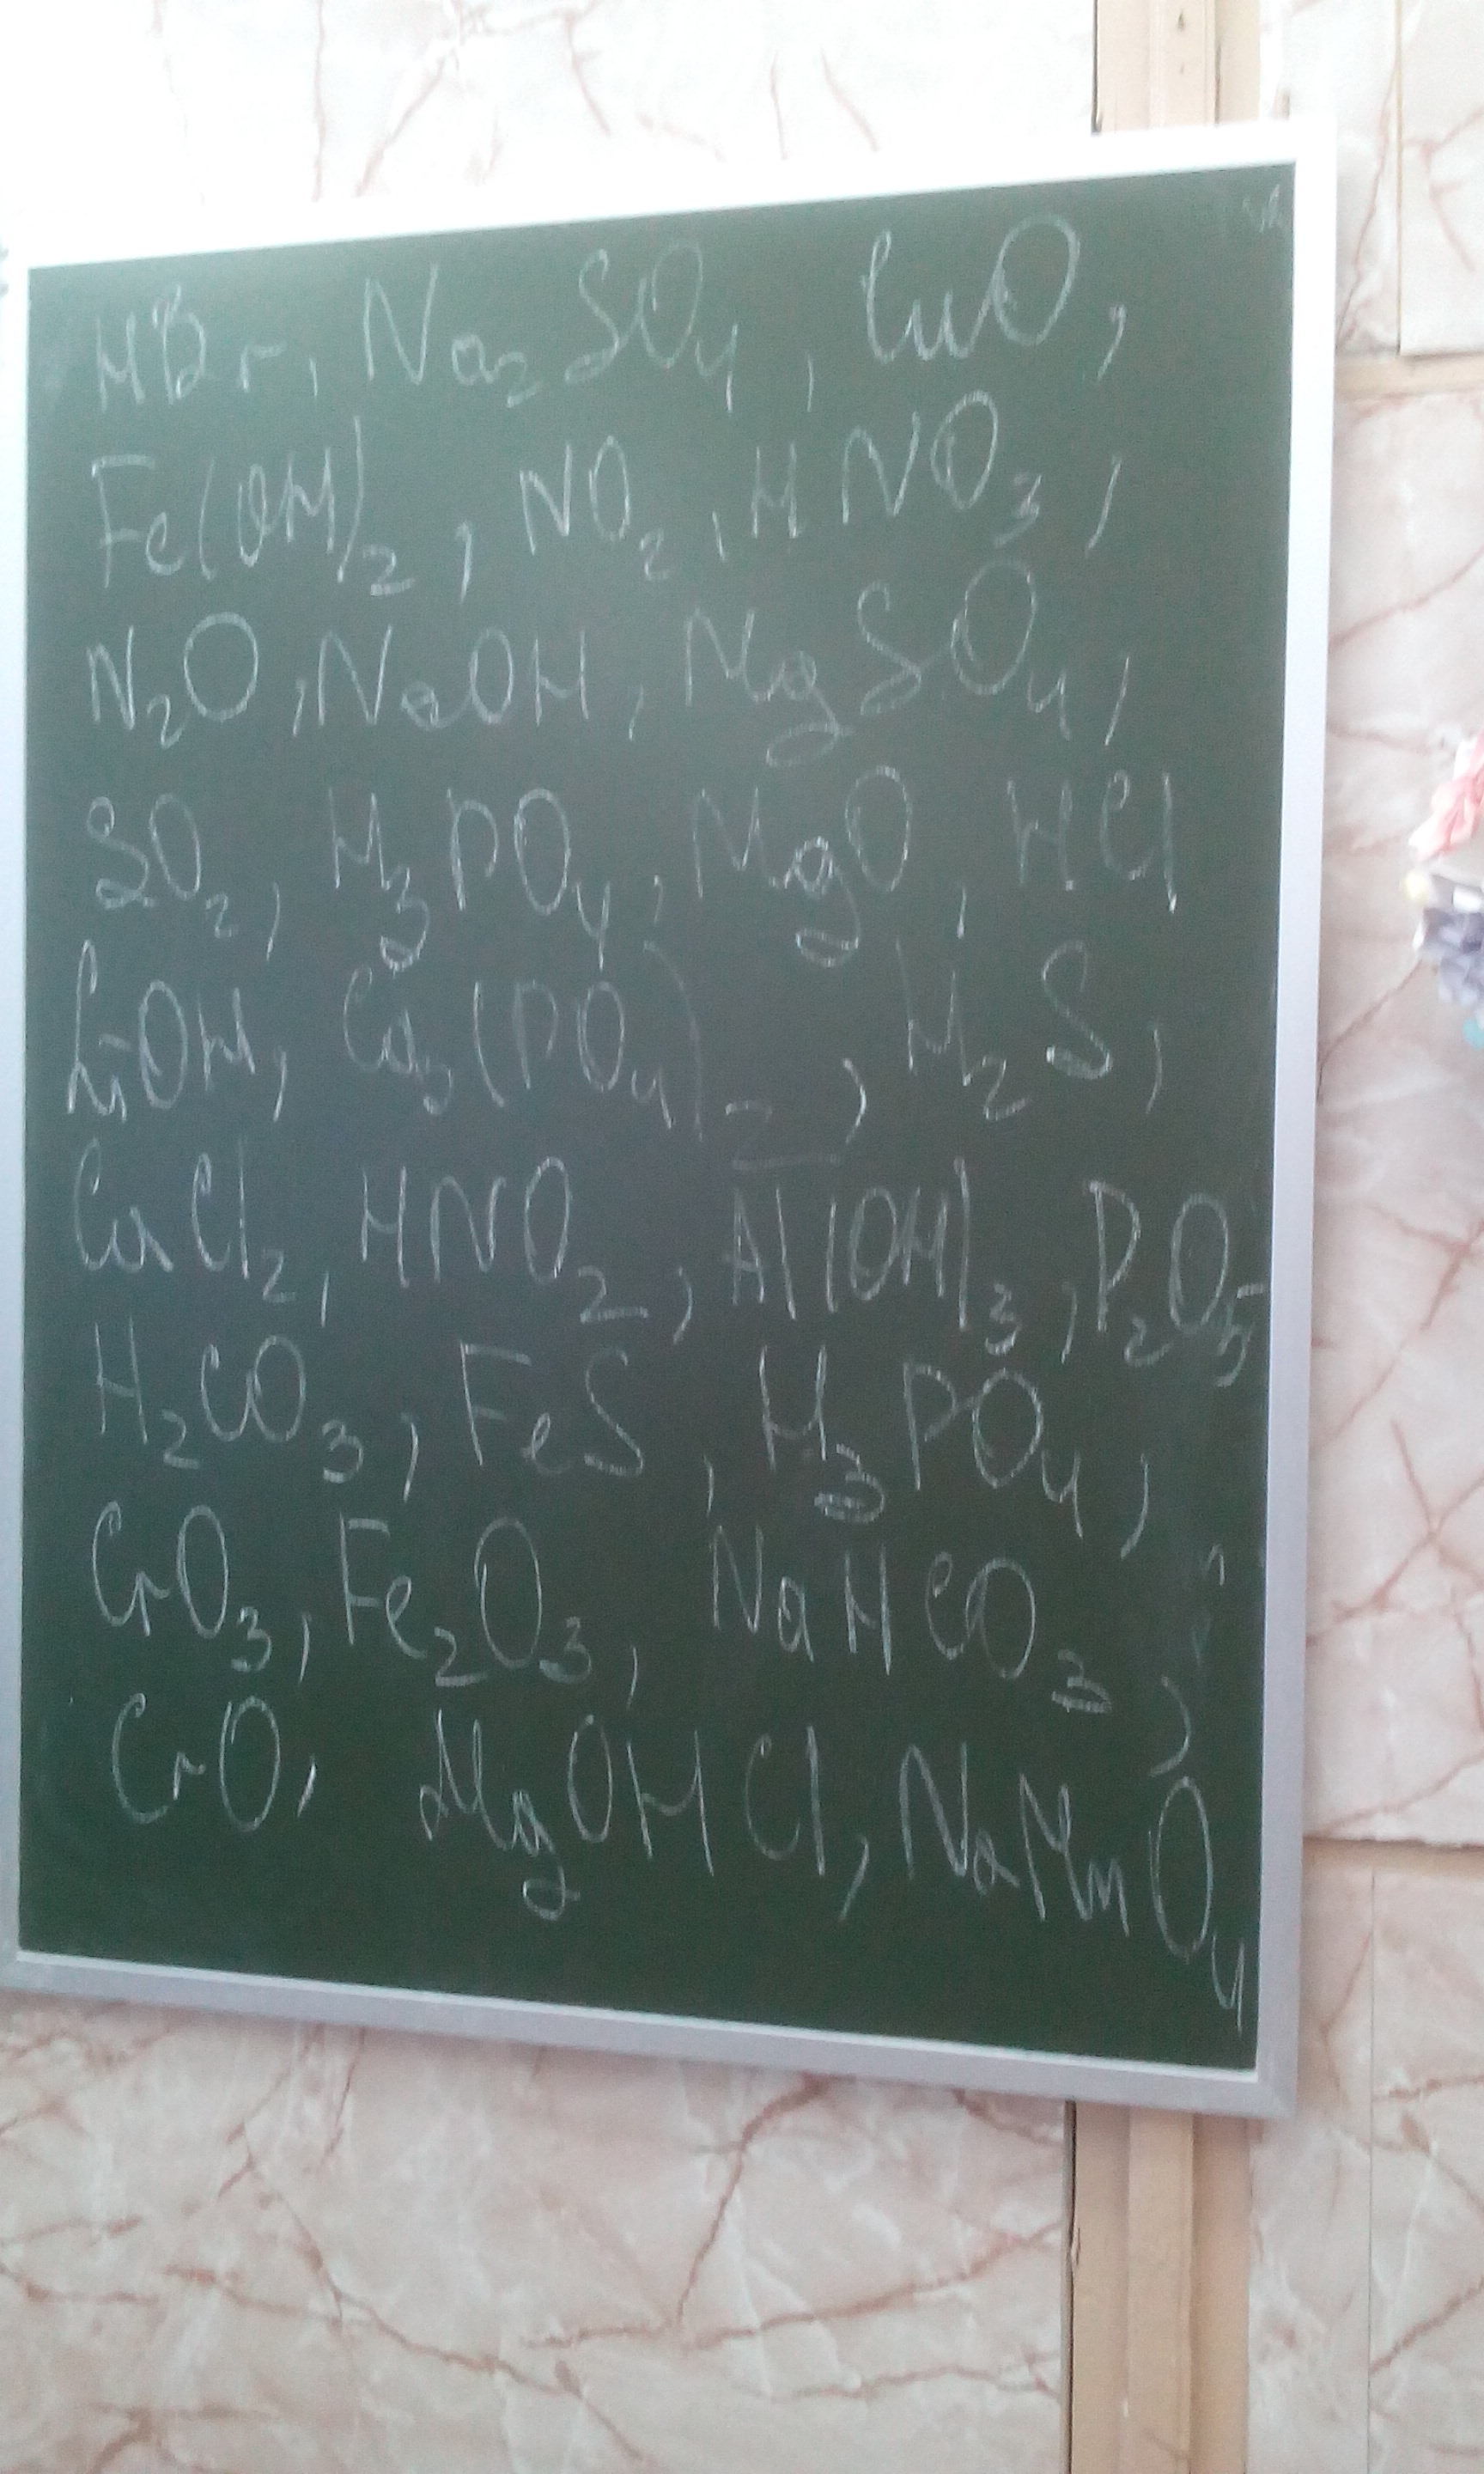 HBr, Na₂SO₄, CuO,
Fe(OH)₂, NO₂, HNO₃,
N₂O, NaOH, MgSO₄,
SO₂, H₃PO₄, MgO, HCl
LiOH, Ca₃(PO₄)₂, H₂S,
CuCl₂, HNO₂, Al(OH)₃, P₂O₅
H₂CO₃, FeS, H₃PO₄,
CrO₃, Fe₂O₃, NaHCO₃,
CrO, MgOHCl, NaMnO₄